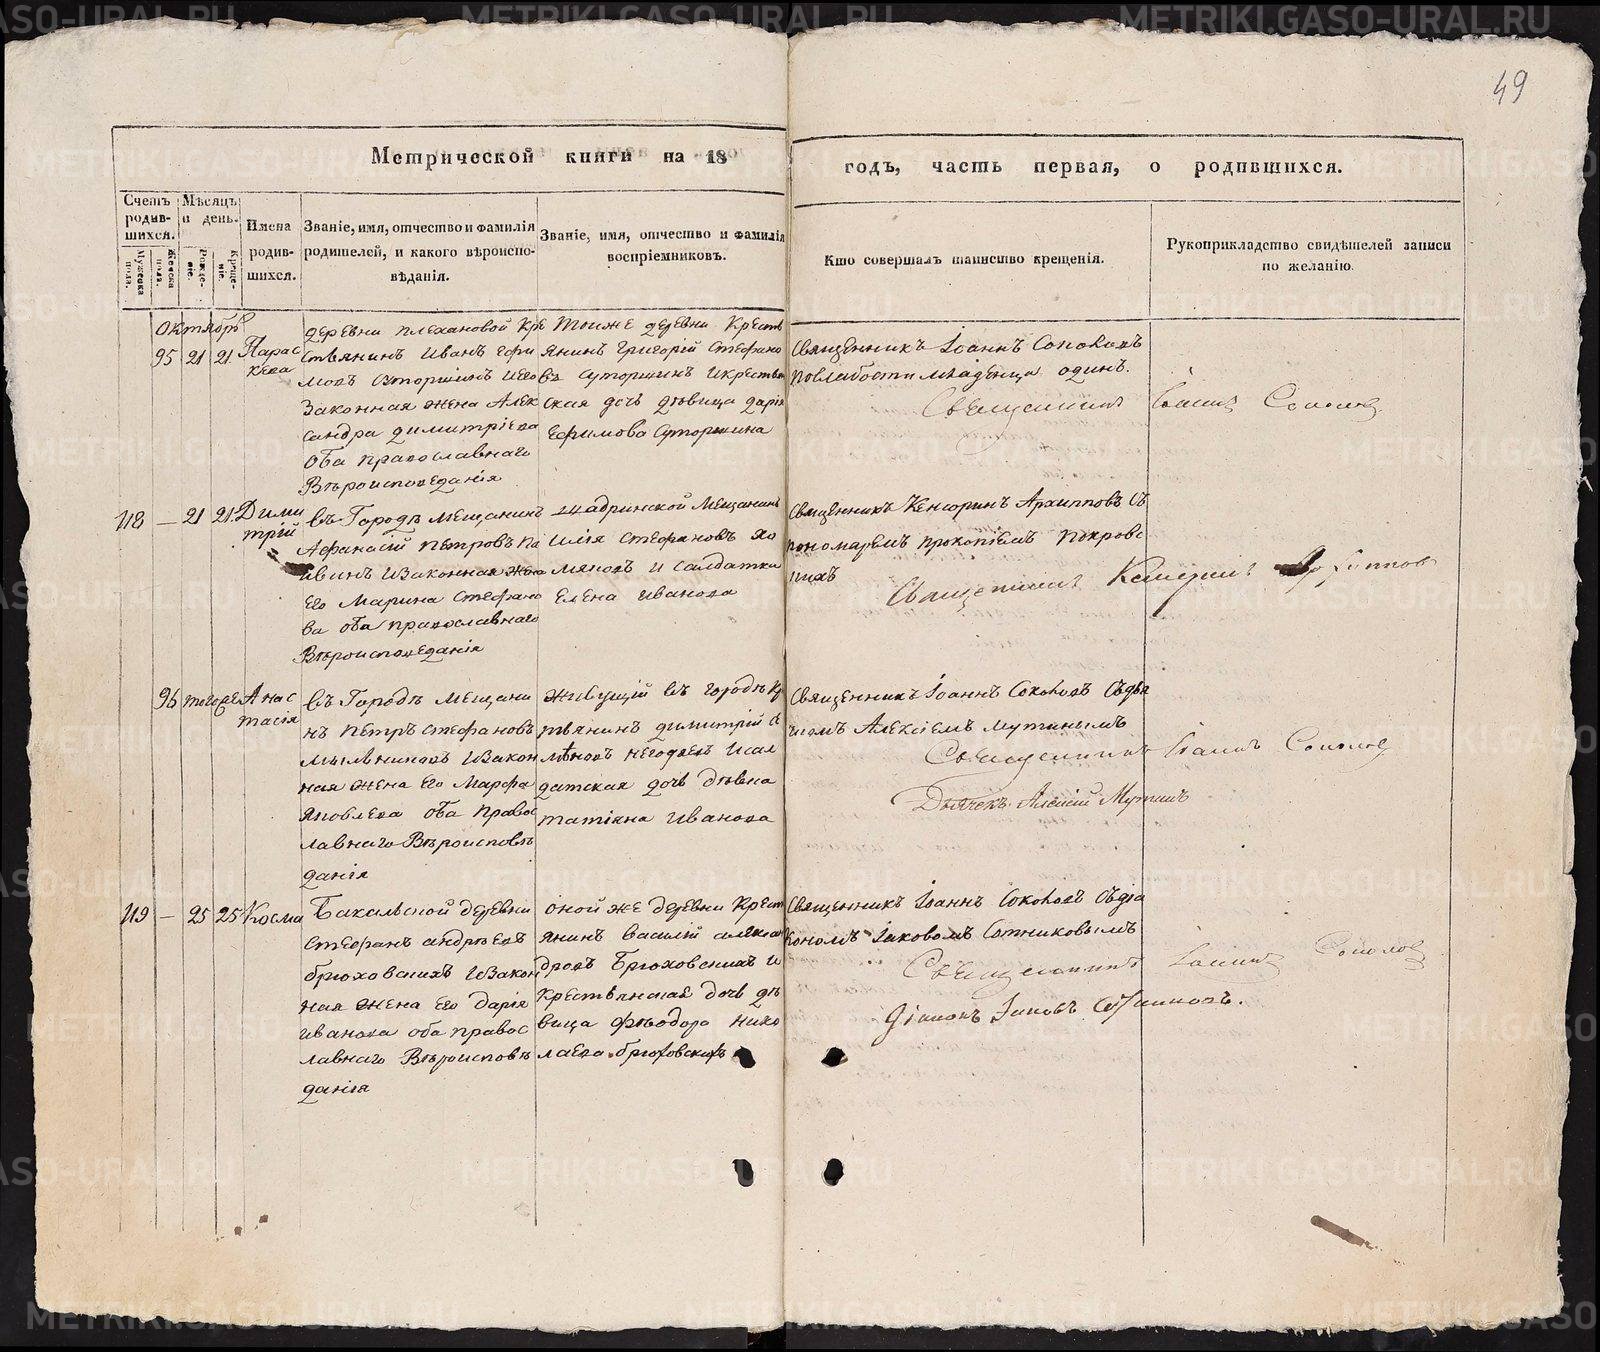 49
Метрической книги на 18 годъ, часть первая, о родившихся.
Счетъ родившихся.
Мужеска пола.
Женска пола.
Мѣсяцъ и день.
Рожденіе.
Крещеніе.
Имена родившихся.
Званіе, имя, отчество и фамилія
родителей, и какого вѣроиспо-
вѣданія.
Званіе, имя, отчество и фамилія
воспріемниковъ.
Кто совершалъ таинство крещенія.
Рукоприкладство свидѣтелей записи
по желанію.
Октябрь
95 21 21 Парас
кева
деревни плехановой Кре
стьянинъ Иванъ
законная жена Алек
сандра димитріева
оба православнаго
Вѣроисповеданія
тоиже деревни Кресть
янинъ григорій стефано
въ суторминъ икрестьян
ская дочь дѣвица дарія
Ефимова Сутормина
Священникъ Іоаннъ Соколовъ
послабости младенца одинъ.
Священникъ Іоаннъ Соколовъ
118 — 21 21 Дими
трій
въ Городѣ мещанинъ
Афанасій петровъ
изаконная жена
его Марина стефано
ва оба православнаго
Вѣроисповеданія
шадринской мещанинъ
илія стефановъ
и салдатка
Елена Иванова
Священникъ Кенсоринъ Архипповъ съ
пономаремъ прокопіемъ покровс
кихъ
Священникъ Кенсоринъ Архипповъ
96 тогоже Анас
тасія
въ Городѣ мещани
нъ петръ стефановъ
мыльниковъ изакон
ная жена его Марфа
Яковлева оба правос
лавнаго Вѣроисповѣ
данія
живущій въ городѣ кр
тьянинъ димитрій
исал
датская дочь дѣвка
татіана Иванова
Священникъ Іоаннъ Соколовъ съдья
чкомъ Алексіемъ мутинымъ
Священникъ Іоаннъ Соколовъ
Дьячекъ Алексій Мутинъ
119 — 25 25 Косма
Бакальской деревни
стефанъ андрѣевъ
брюховскихъ изакон
ная жена его дарія
иванова оба правос
лавнаго Вѣроисповѣ
данія
оной же деревни Крест
янинъ василій алексан
дровъ Брюховскихъ и
крестьянская дочь дѣ
вица Феодора нико
лаева брюховскихъ
Священникъ Іоаннъ Соколовъ съдіа
кономъ Іаковомъ Сотниковымъ
Священникъ Іоаннъ Соколовъ
Діаконъ Іаковъ Сотниковъ.